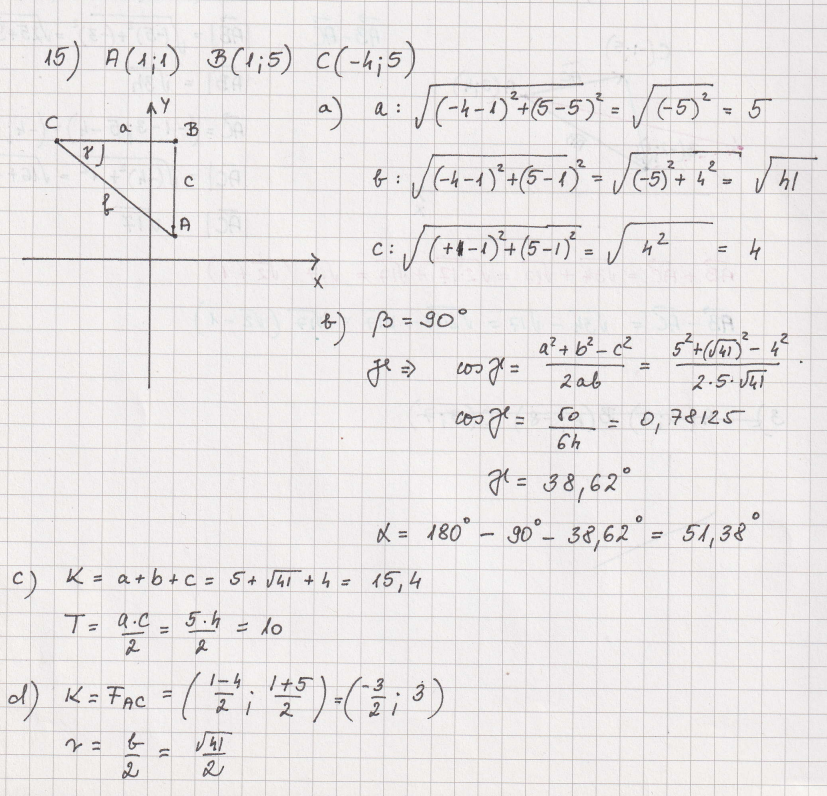 15) A(1;1) B(1;5) C(-4;5)
Y
C a B
γ
c
b
A
X
a) a: √((-4-1)²+(5-5)²) = √((-5)²) = 5
b: √((-4-1)²+(5-1)²) = √((-5)²+4²) = √41
c: √((+1-1)²+(5-1)²) = √(4²) = 4
b) β = 90°
γ ⇒ cos γ = (a²+b²-c²)/(2ab) = (5²+(√41)²-4²)/(2·5·√41)
cos γ = 50/64 = 0,78125
γ = 38,62°
α = 180° - 90° - 38,62° = 51,38°
c) K = a+b+c = 5+√41+4 = 15,4
T = (a·c)/2 = (5·4)/2 = 10
d) K = F_AC = ((1-4)/2 ; (1+5)/2) = (-3/2 ; 3)
r = b/2 = √41/2